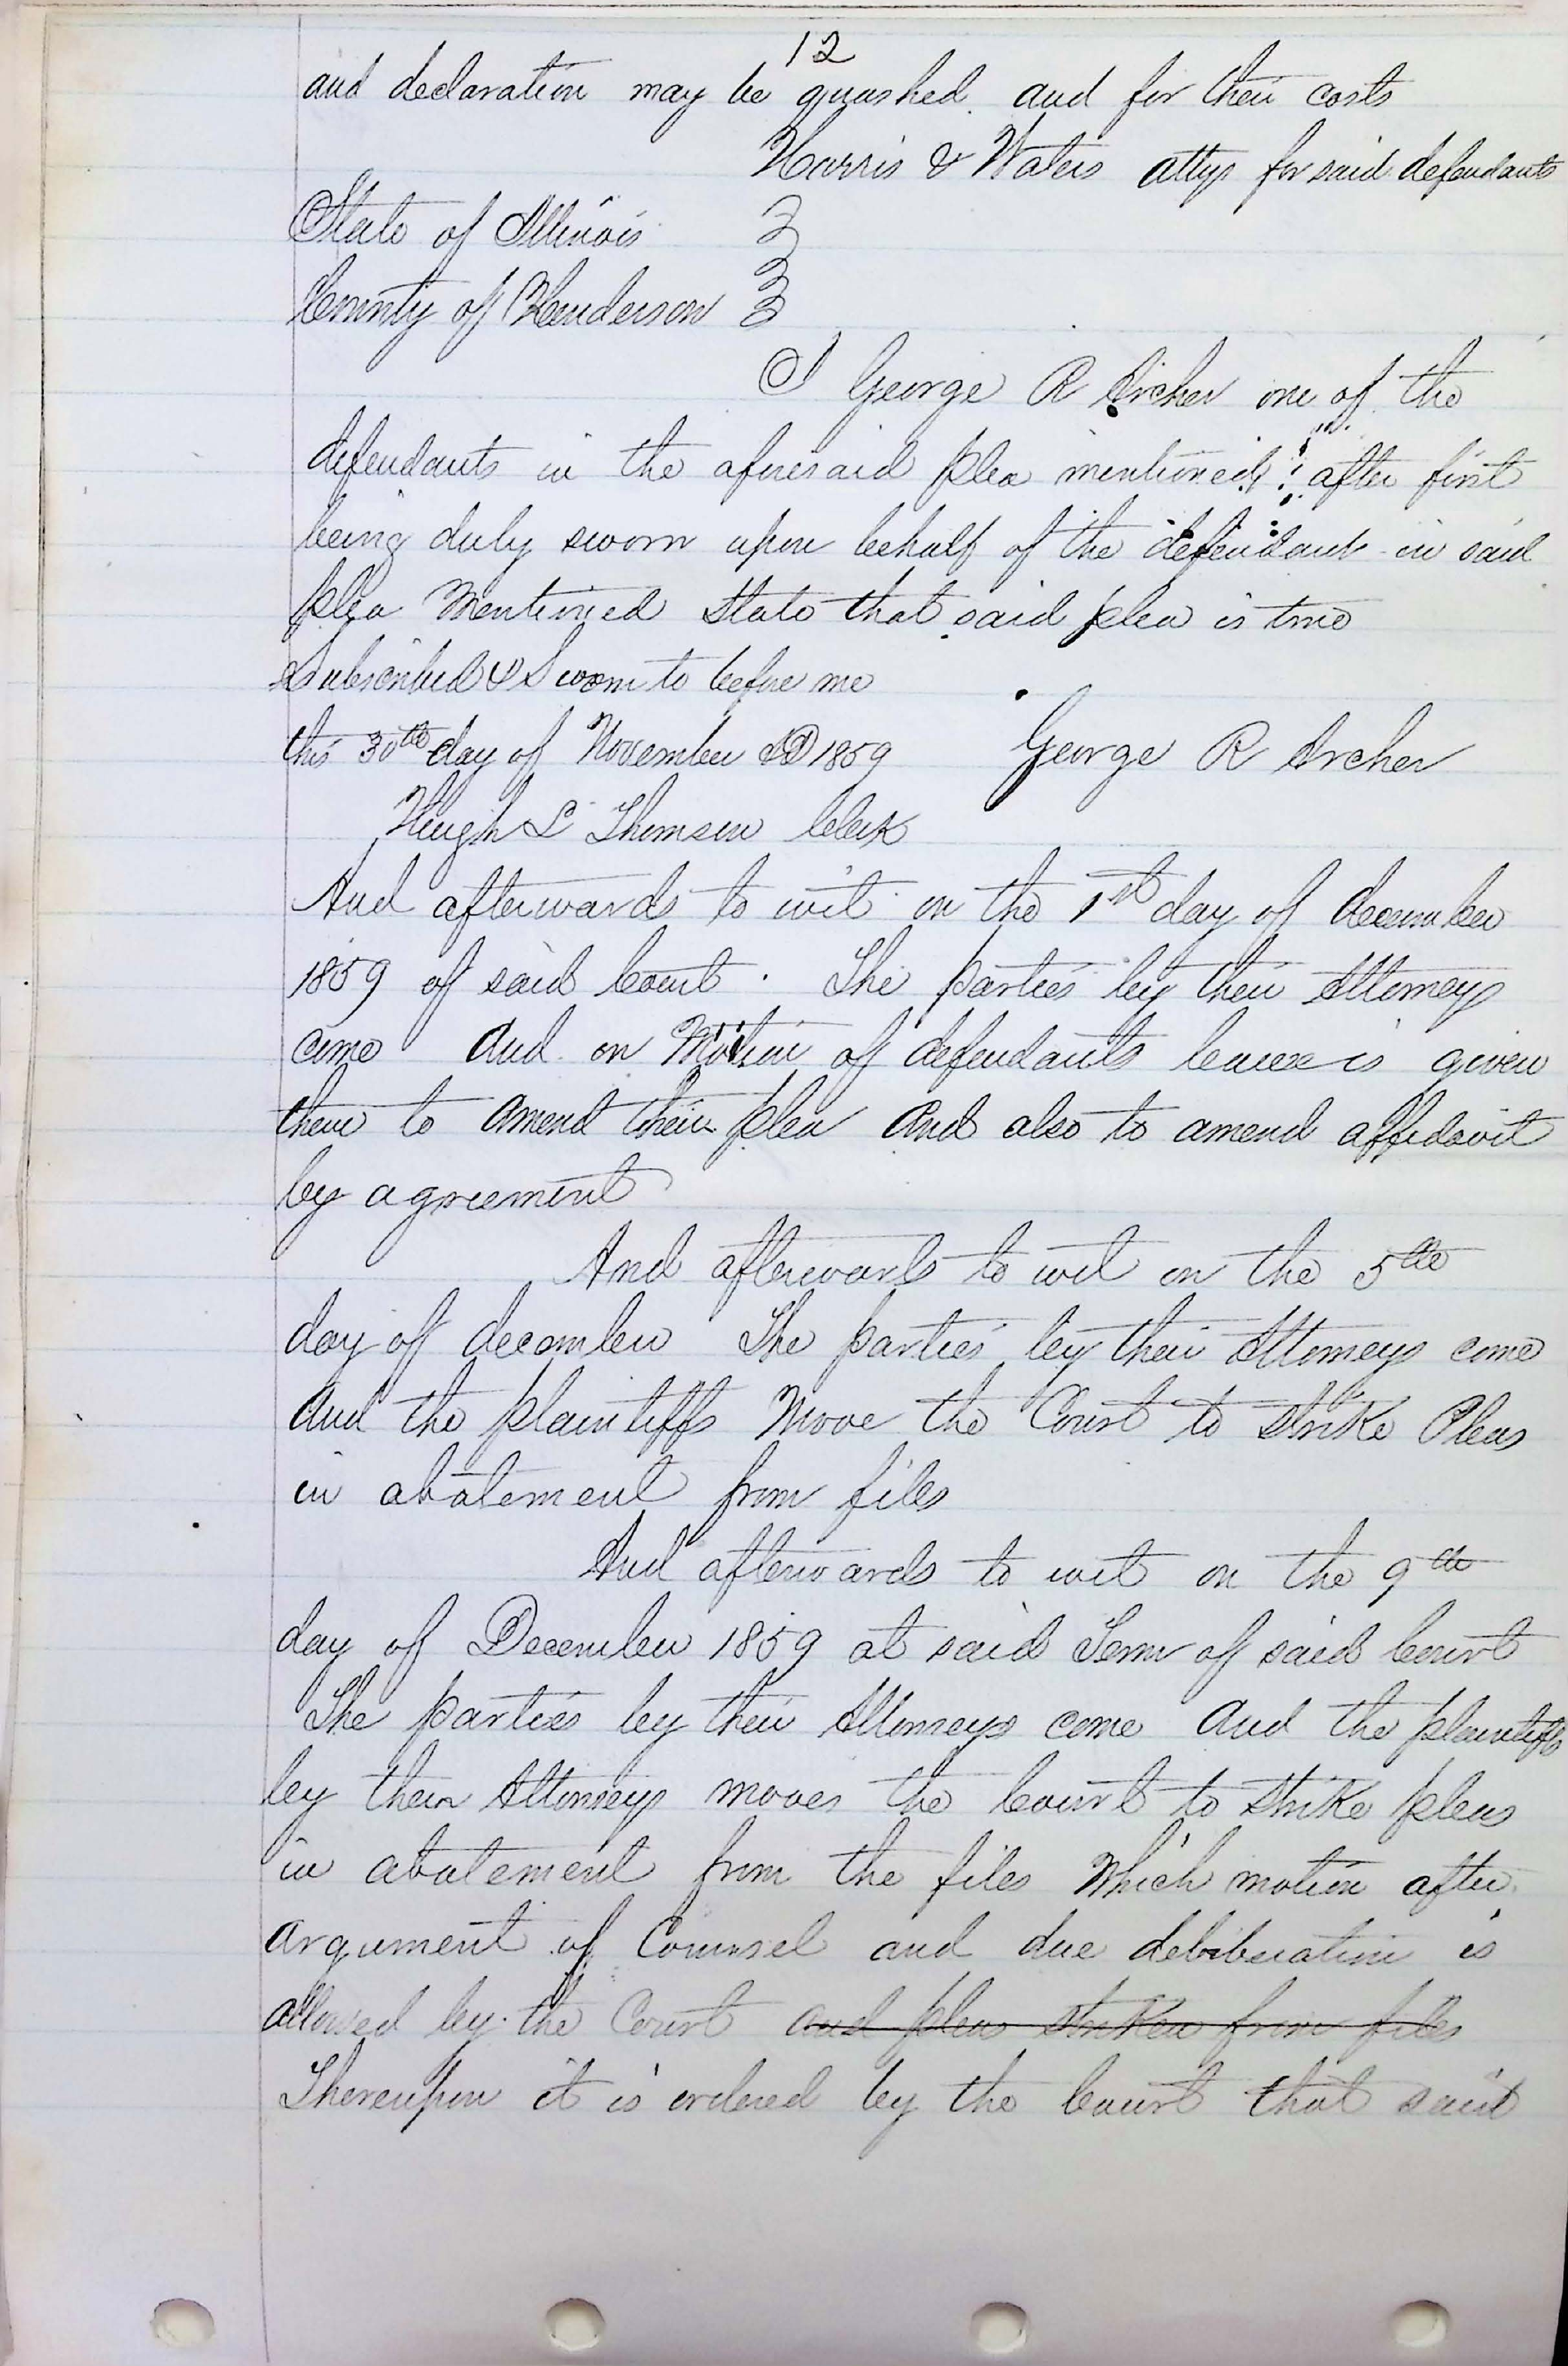 12
and declaration may be quashed. and for their costs
Harris & Waters attys for said defendants
State of Illinois
County of Henderson
I George R Archer one of the
defendants in the aforesaid plea mentioned after first
being duly sworn upon behalf of the defendants in said
plea Mentioned State that said plea is true
Subscribed & Sworn to before me
this 30th day of November AD 1859 George R Archer
Hugh L Thomson Clerk
And afterwards to wit on the 1st day of december
1859 of said Court. The parties by their Attorneys
come And on Motion of defendants leave is given
them to amend their plea And also to amend affidavit
by agreement
And afterwards to wit on the 5th
day of december The parties by their Attorneys come
And the plaintiffs Move the Court to Strike Pleas
in abatement from files
And afterwards to wit on the 9th
day of December 1859 at said Term of said Court
The parties by their Attorneys come And the plaintiffs
by their Attorneys moves the Court to Strike pleas
in abatement from the files Which motion after
argument of Counsel and due deliberation is
allowed by the Court and pleas striken from files
Thereupon it is ordered by the Court that said